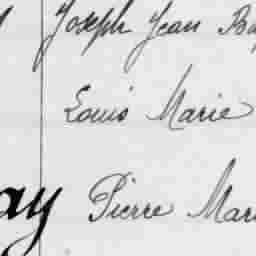 Joseph Jean Ba
Louis Marie
ay Pierre Mari